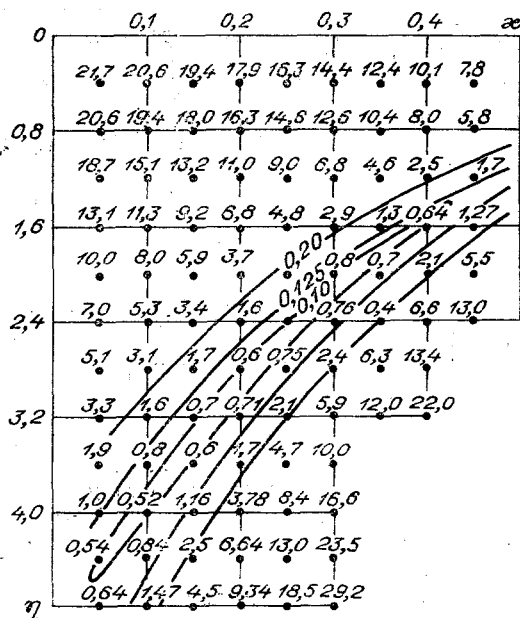 0,1 0,2 0,3 0,4 æ
0
21,7 20,6 19,4 17,9 16,3 14,4 12,4 10,1 7,8
20,6 19,4 18,0 16,3 14,6 12,6 10,4 8,0 5,8
0,8
18,7 15,1 13,2 11,0 9,0 6,8 4,6 2,5 1,7
13,1 11,3 9,2 6,8 4,8 2,9 1,3 0,64 1,27
1,6
0,20
10,0 8,0 5,9 3,7 0,8 0,7 2,1 5,5
0,125
0,10
7,0 5,3 3,4 1,6 0,76 0,4 6,6 13,0
2,4
5,1 3,1 1,7 0,6 0,75 2,4 6,3 13,4
3,3 1,6 0,7 0,71 2,1 5,9 12,0 22,0
3,2
1,9 0,8 0,6 1,7 4,7 10,0
1,0 0,52 1,16 3,78 8,4 16,6
4,0
0,54 0,84 2,5 6,64 13,0 23,5
0,64 1,47 4,5 9,34 18,5 29,2
η